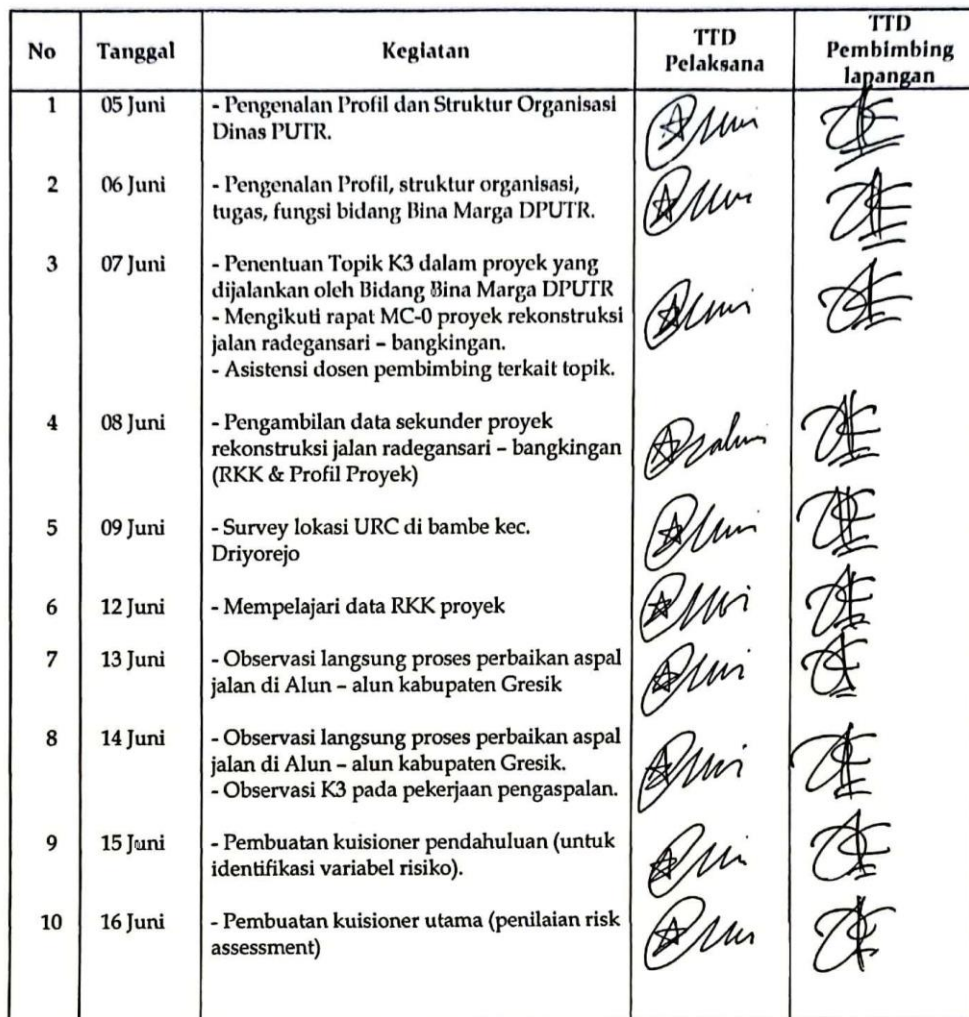 No Tanggal Kegiatan TTD Pelaksana TTD Pembimbing lapangan
1 05 Juni - Pengenalan Profil dan Struktur Organisasi
Dinas PUTR.
2 06 Juni - Pengenalan Profil, struktur organisasi,
tugas, fungsi bidang Bina Marga DPUTR.
3 07 Juni - Penentuan Topik K3 dalam proyek yang
dijalankan oleh Bidang Bina Marga DPUTR
- Mengikuti rapat MC-0 proyek rekonstruksi
jalan radegansari – bangkingan.
- Asistensi dosen pembimbing terkait topik.
4 08 Juni - Pengambilan data sekunder proyek
rekonstruksi jalan radegansari – bangkingan
(RKK & Profil Proyek)
5 09 Juni - Survey lokasi URC di bambe kec.
Driyorejo
6 12 Juni - Mempelajari data RKK proyek
7 13 Juni - Observasi langsung proses perbaikan aspal
jalan di Alun – alun kabupaten Gresik
8 14 Juni - Observasi langsung proses perbaikan aspal
jalan di Alun – alun kabupaten Gresik.
- Observasi K3 pada pekerjaan pengaspalan.
9 15 Juni - Pembuatan kuisioner pendahuluan (untuk
identifikasi variabel risiko).
10 16 Juni - Pembuatan kuisioner utama (penilaian risk
assessment)